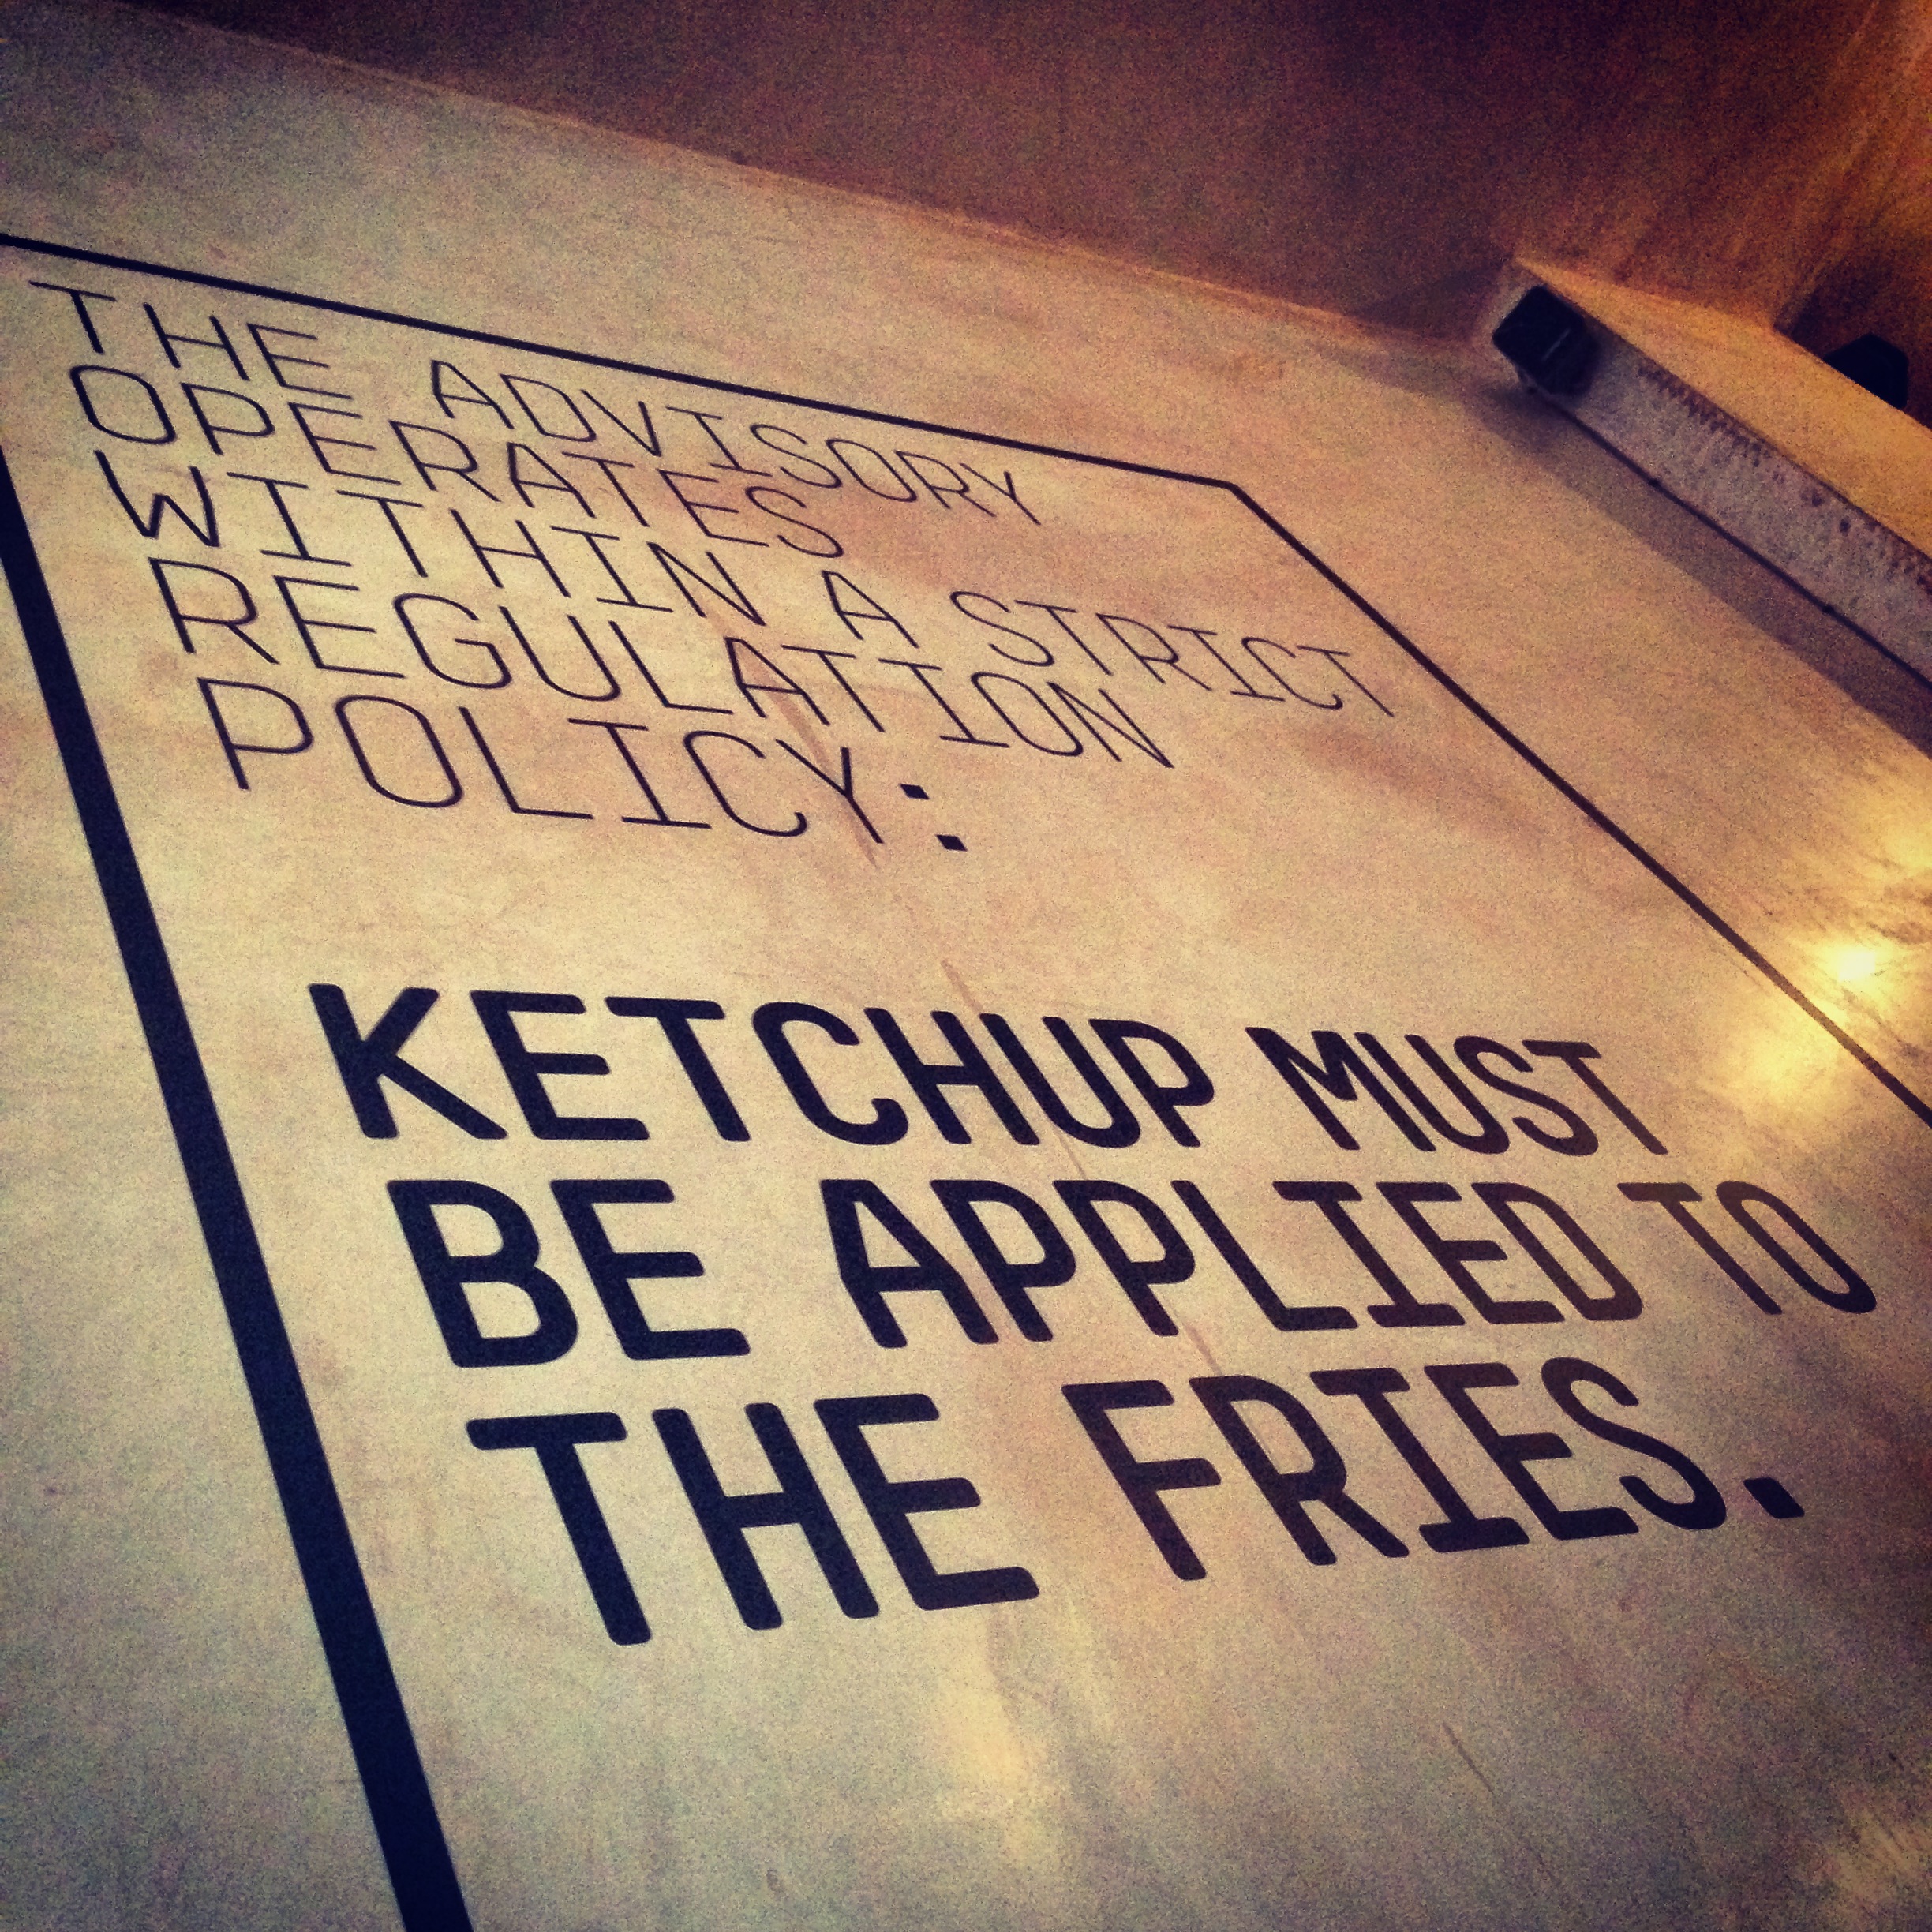 THE ADVISORY
OPERATES
WITHIN A STRICT
REGULATION
POLICY:
KETCHUP MUST
BE APPLIED TO
THE FRIES.